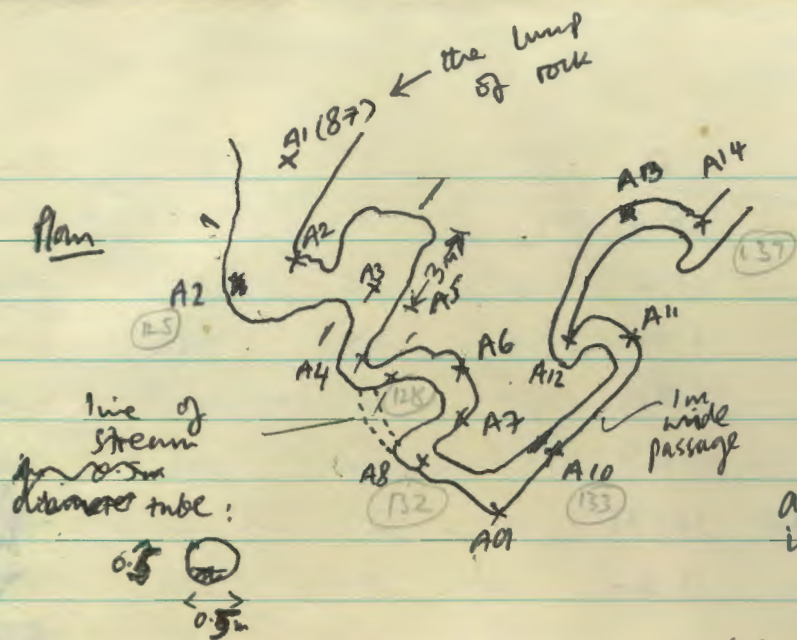 the lump
of rock
A1 (87)
Plan
A2
A2
125
A3
3m
A5
A4
A6
128
A7
A8
132
A9
A10
133
A11
A12
A13
A14
137
1m
wide
passage
line of
stream
0.5m
diameter tube:
0.5
0.5m